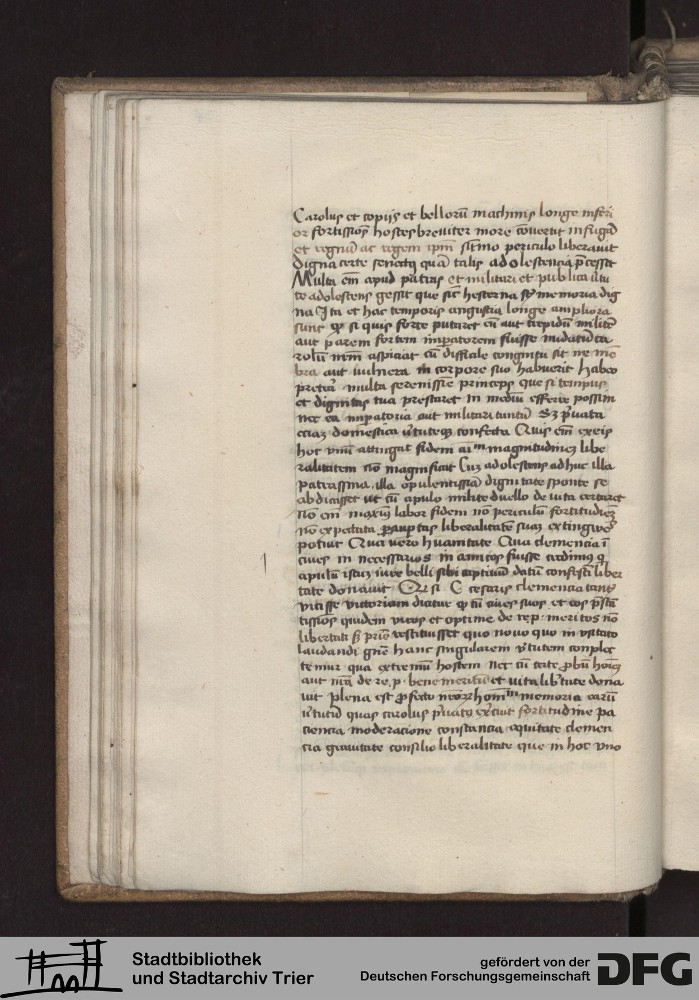 Carolus et copijs et bellorū machinis longe inferi
or fortissiōs hostes breuiter more cōuertit in fugā
et regnū ac regem ipm̄ sūmo periculo liberauit
digna certe senectꝯ quā talis adolestencia p̄cessit
Multa em̄ apud patras et militari et publica ūtu
te adolestens gessit que sic̄ hesterna memoria dig
na Ita et hac temporis angustia longe ampliora
sunt qꝫ si quis forte putaret eū aut trepidū militē
aut parem fortem imꝑatorem fuisse
rolū nr̄m aspiciat cū difficile sit ne mē
bra aut vulnera in corpore suo habuerit habeo
p̄terea multa serenissīe princeps que si tempus
et dignitas tua prestaret in mediū efferre possim
nec ea imꝑatoria aut militari tantū Sꝫ p̄uata
eciaꝫ domestica v̄tuteqꝫ confecta Quis em̄ ex eis
hoc vnū attingat fidem magnitudinēqꝫ libe
ralitatem nō magnificat Cuꝫ adolestens adhuc illa
patrassina, illa opulentissiā dignitate sponte se
abdicasset ut cū apulo milite duello de vita certaret
nō em̄ labor fidem nō periculū fortitudinē
nō expectata liberalitatē suaꝫ extingwe
potuit Qua vero hūanitate Qua clemencia ī
ciues in necessarios in amicos fuisse credimus qꝫ
apulū istuꝫ iure belli sibi captiuū datū confestī liber
tate donauit Qꝫ si C cesaris clemencia tantꝯ
vicisse victoriam dicatur qꝫ tū ciues suos et eos p̄stā
tissiōs quidem viros et optime de re.p. meritos nō
libertati sꝫ prius restituisset quo nouo quo in vsitato
laudandi gn̄e hanc singularem v̄tutem complec
temur qua extremū hostem nec cū certe ꝓbū hoīeꝫ
aut de re.p. bene meritū et vita lib̄tate dona
uit plena est ꝓfecto memoria earū
v̄tutū quas carolus p̄uatꝯ ex̄cuit fortitudine pa
ciencia moderacione constancia equitate clemen
cia grauitate consilio liberalitate que in hoc vno
Stadtbibliothek
und Stadtarchiv Trier
gefördert von der
Deutschen Forschungsgemeinschaft
DFG